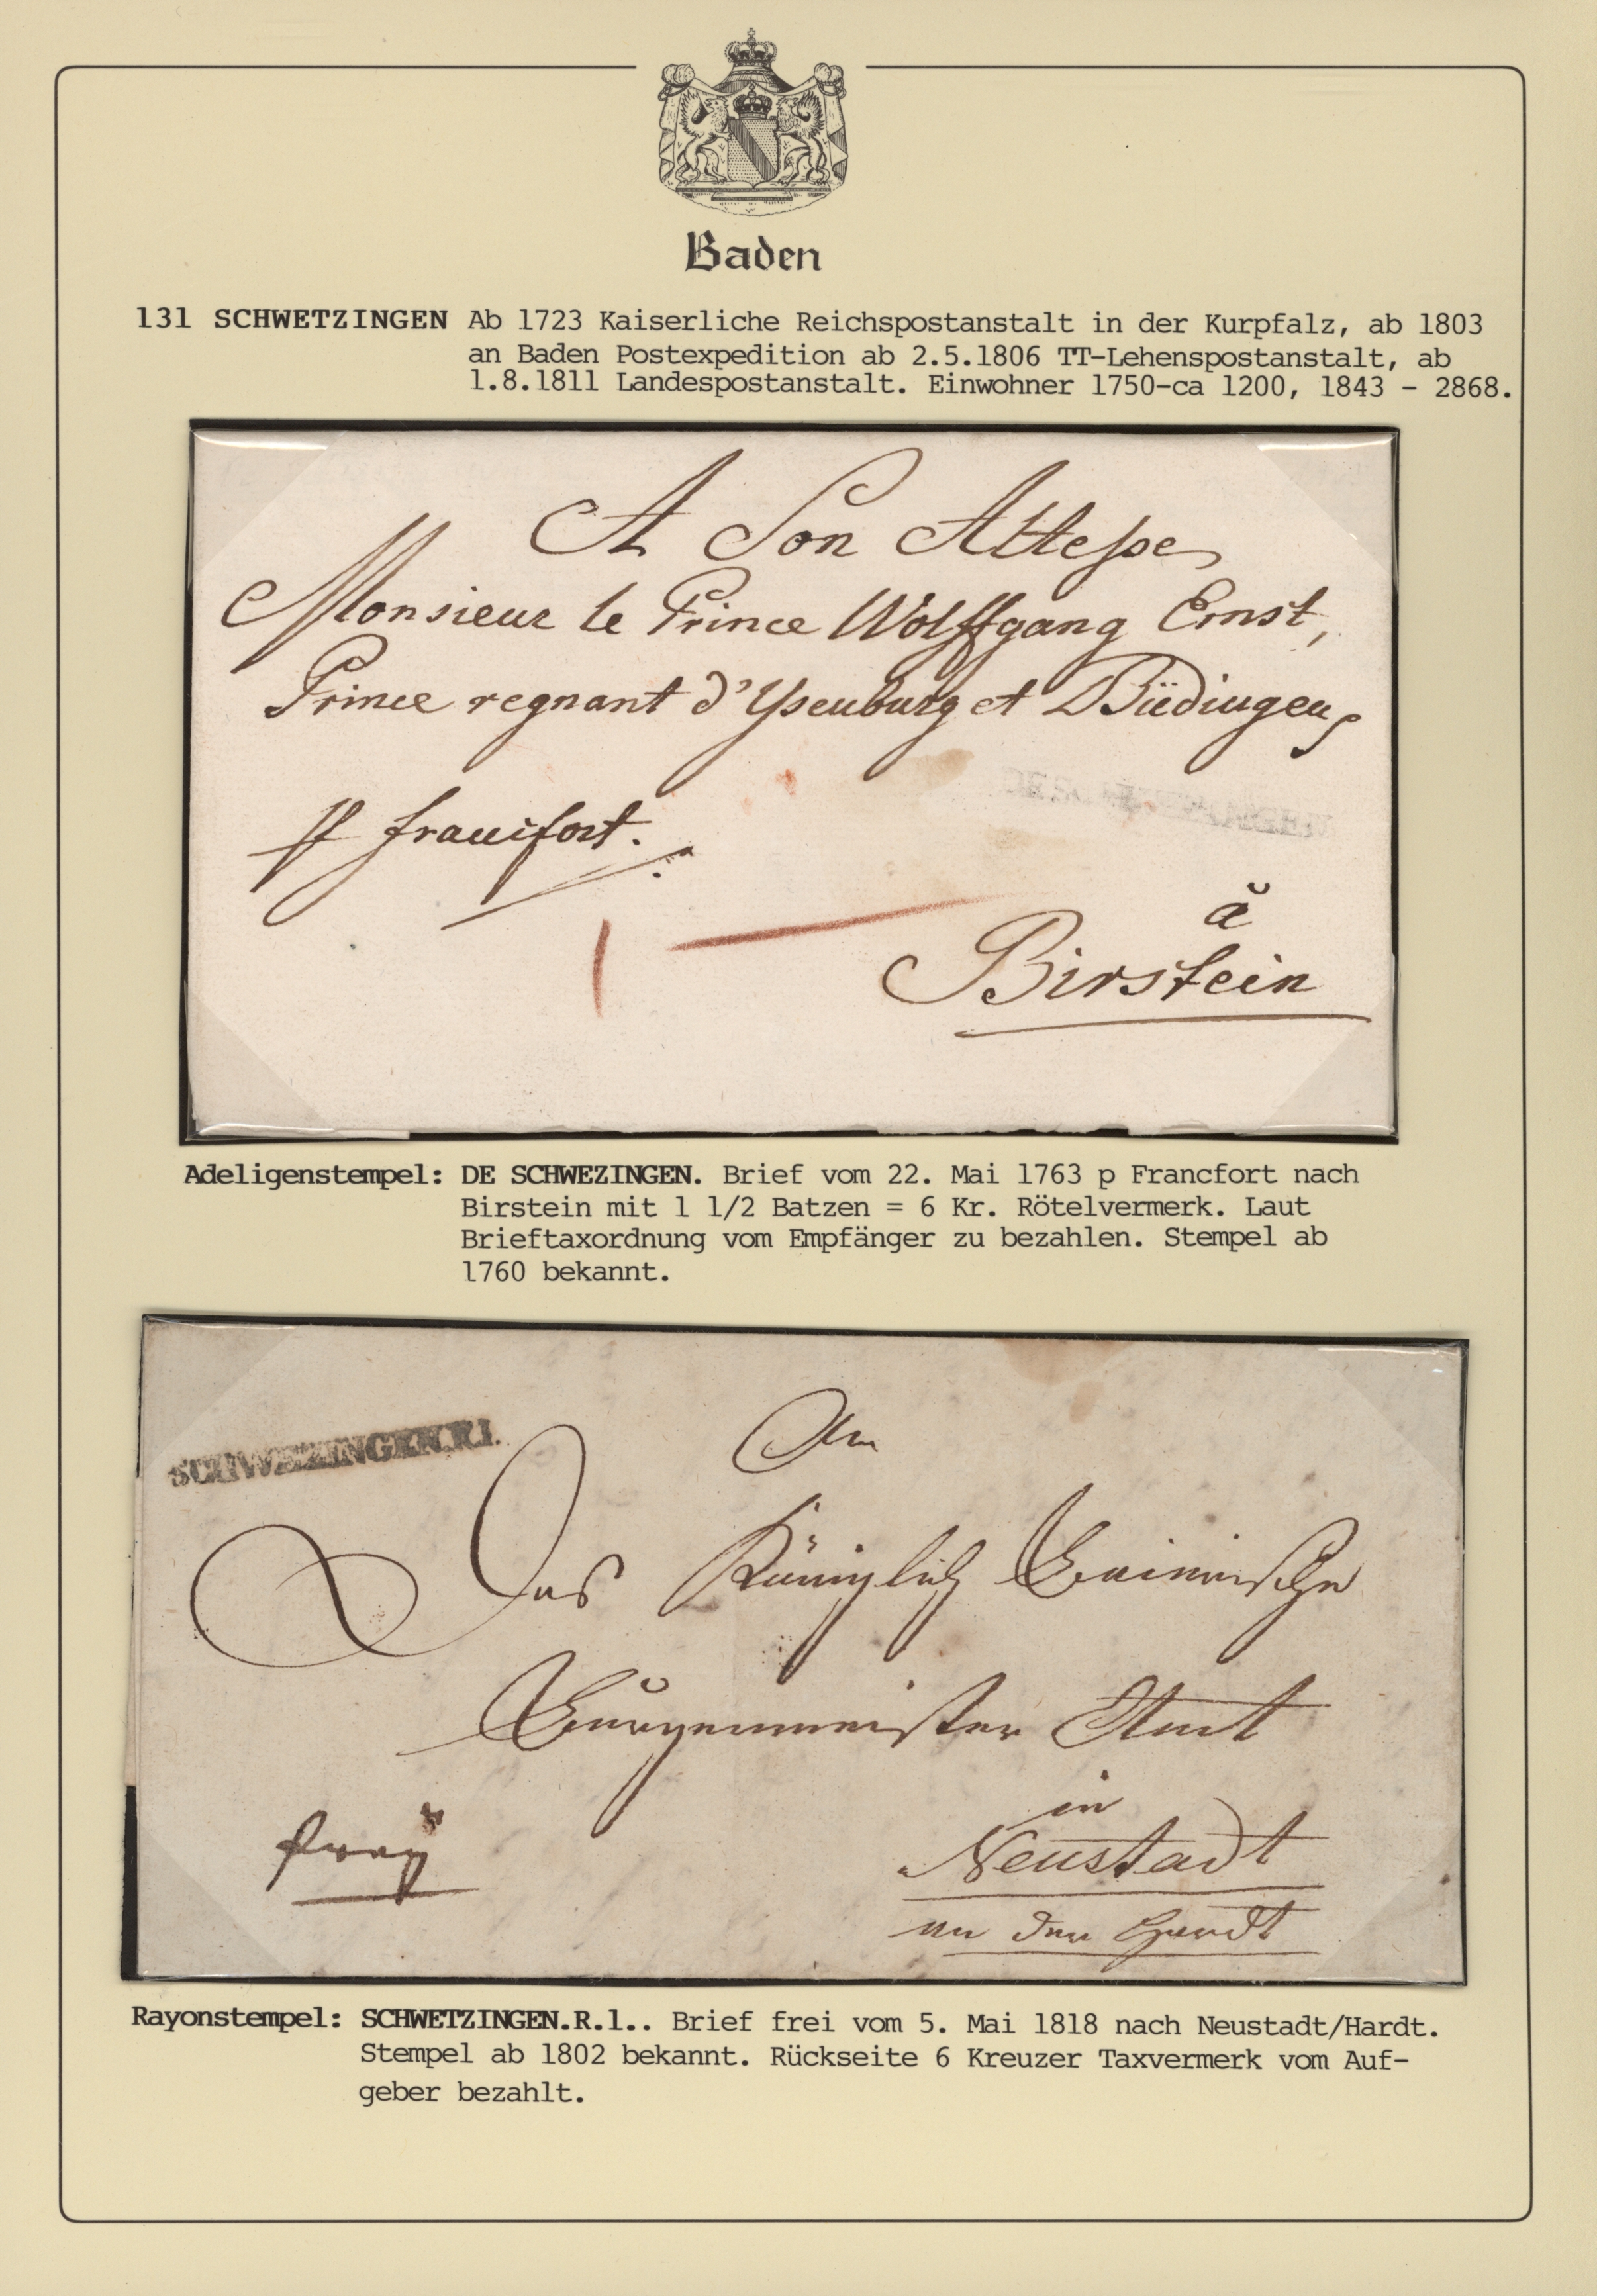 Baden
131 SCHWETZINGEN Ab 1723 Kaiserliche Reichspostanstalt in der Kurpfalz, ab 1803
an Baden Postexpedition ab 2.5.1806 TT-Lehenspostanstalt, ab
1.8.1811 Landespostanstalt. Einwohner 1750-ca 1200, 1843 - 2868.
A Son Altesse
Monsieur le Prince Wolffgang Ernst,
Prince regnant d'Ysenburg et Büdingen
francfort.
à
Birstein
Adeligenstempel: DE SCHWEZINGEN. Brief vom 22. Mai 1763 p Francfort nach
Birstein mit 1 1/2 Batzen = 6 Kr. Rötelvermerk. Laut
Brieftaxordnung vom Empfänger zu bezahlen. Stempel ab
1760 bekannt.
SCHWEZINGEN.R.1.
An
Das Königlich Bairische
Burgermeister Amt
in
Neustadt
an der Hardt
frey
Rayonstempel: SCHWETZINGEN.R.1.. Brief frei vom 5. Mai 1818 nach Neustadt/Hardt.
Stempel ab 1802 bekannt. Rückseite 6 Kreuzer Taxvermerk vom Auf-
geber bezahlt.